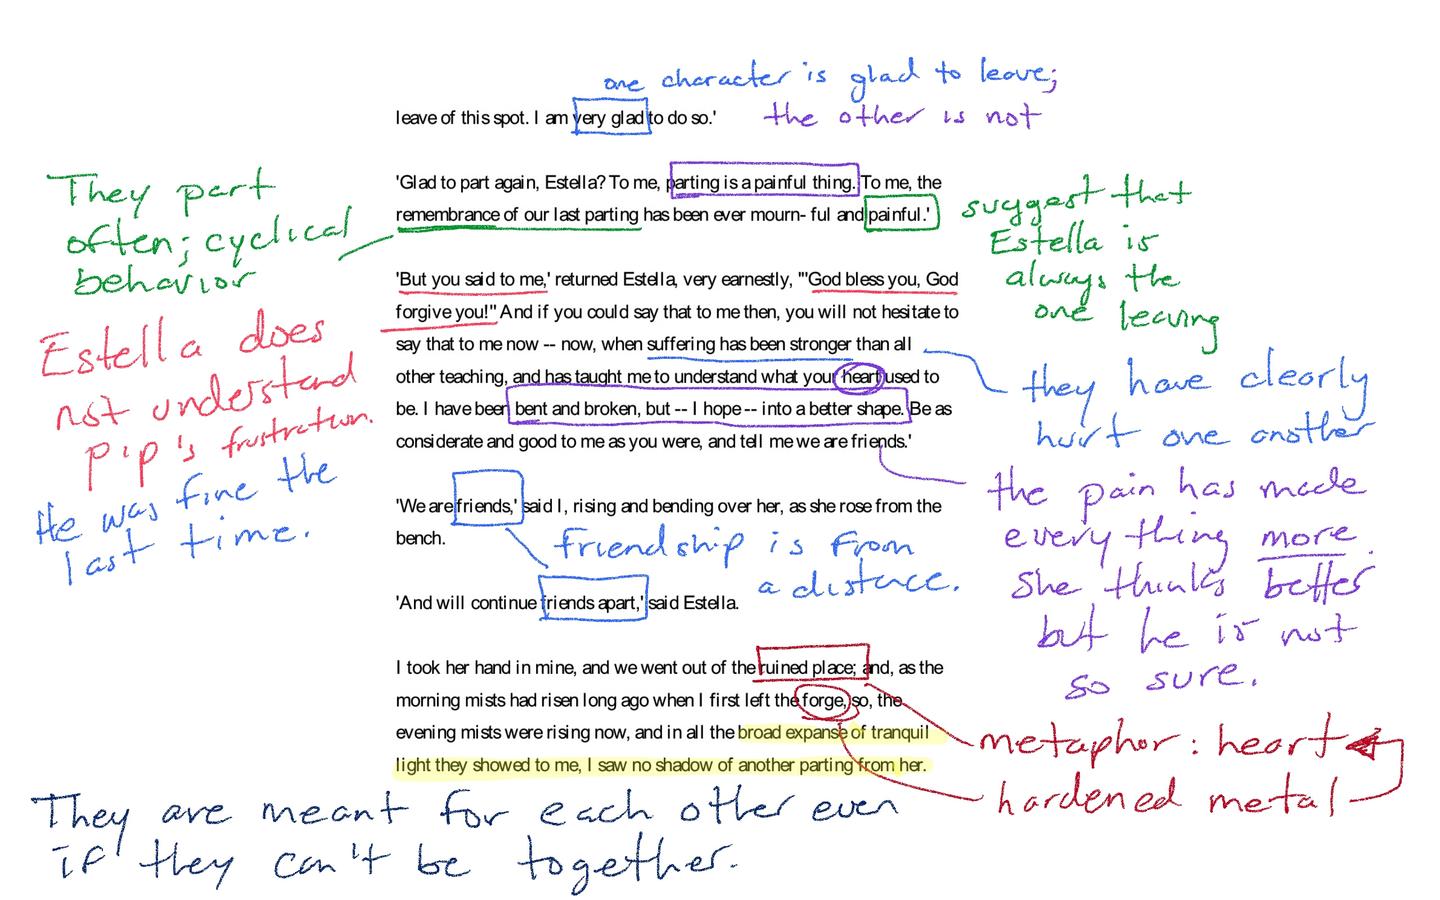 one character is glad to leave;
the other is not
leave of this spot. I am very glad to do so.'
'Glad to part again, Estella? To me, parting is a painful thing. To me, the
remembrance of our last parting has been ever mourn- ful and painful.'
They part
often; cyclical
behavior
suggest that
Estella is
always the
one leaving
'But you said to me,' returned Estella, very earnestly, '"God bless you, God
forgive you!" And if you could say that to me then, you will not hesitate to
say that to me now -- now, when suffering has been stronger than all
other teaching, and has taught me to understand what your heart used to
be. I have been bent and broken, but -- I hope -- into a better shape. Be as
considerate and good to me as you were, and tell me we are friends.'
Estella does
not understand
Pip's frustration.
He was fine the
last time.
they have clearly
hurt one another
the pain has made
everything more.
She thinks better
but he is not
so sure.
'We are friends,' said I, rising and bending over her, as she rose from the
bench.
friendship is from
a distance.
'And will continue friends apart,' said Estella.
I took her hand in mine, and we went out of the ruined place; and, as the
morning mists had risen long ago when I first left the forge, so, the
evening mists were rising now, and in all the broad expanse of tranquil
light they showed to me, I saw no shadow of another parting from her.
metaphor: heart
hardened metal
They are meant for each other even
if they can't be together.